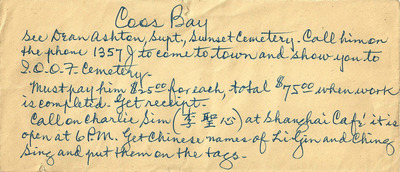 Coos Bay
See Dean Ashton, Supt, Sunset Cemetery. Call him on
the phone 1357J to come to town and show you to
I.O.O.F. Cemetery.
Must pay him $25.00 for each, total $75.00 when work
is completed. Get receipt.
Call on Charlie Sim (李聖心) at Shanghai Cafe' it is
open at 6 P.M. Get Chinese names of Li Gin and Ching
Sing and put them on the tags.